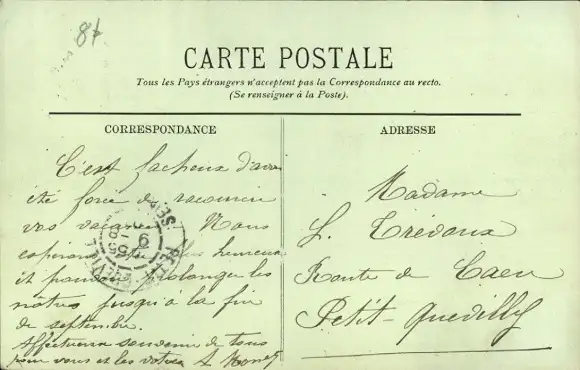 8f
CARTE POSTALE
Tous les Pays étrangers n'acceptent pas la Correspondance au recto.
(Se renseigner à la Poste).
CORRESPONDANCE
C'est facheux d'avoir
été forcé de
vos vacances Nous
espérons être plus heureux
et pouvoir prolonger les
nôtres jusqu'à la fin
de septembre.
Affectueux souvenir de tous
pour vous et les vôtres
ADRESSE
Madame
L. Trédoux
Route de Caen
Petit-Quevilly